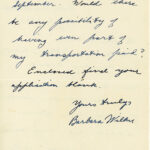 September. Would there
be any possibility of
having even part of
my transportation paid?
Enclosed find your
application blank.
Yours truly,
Barbara Walker